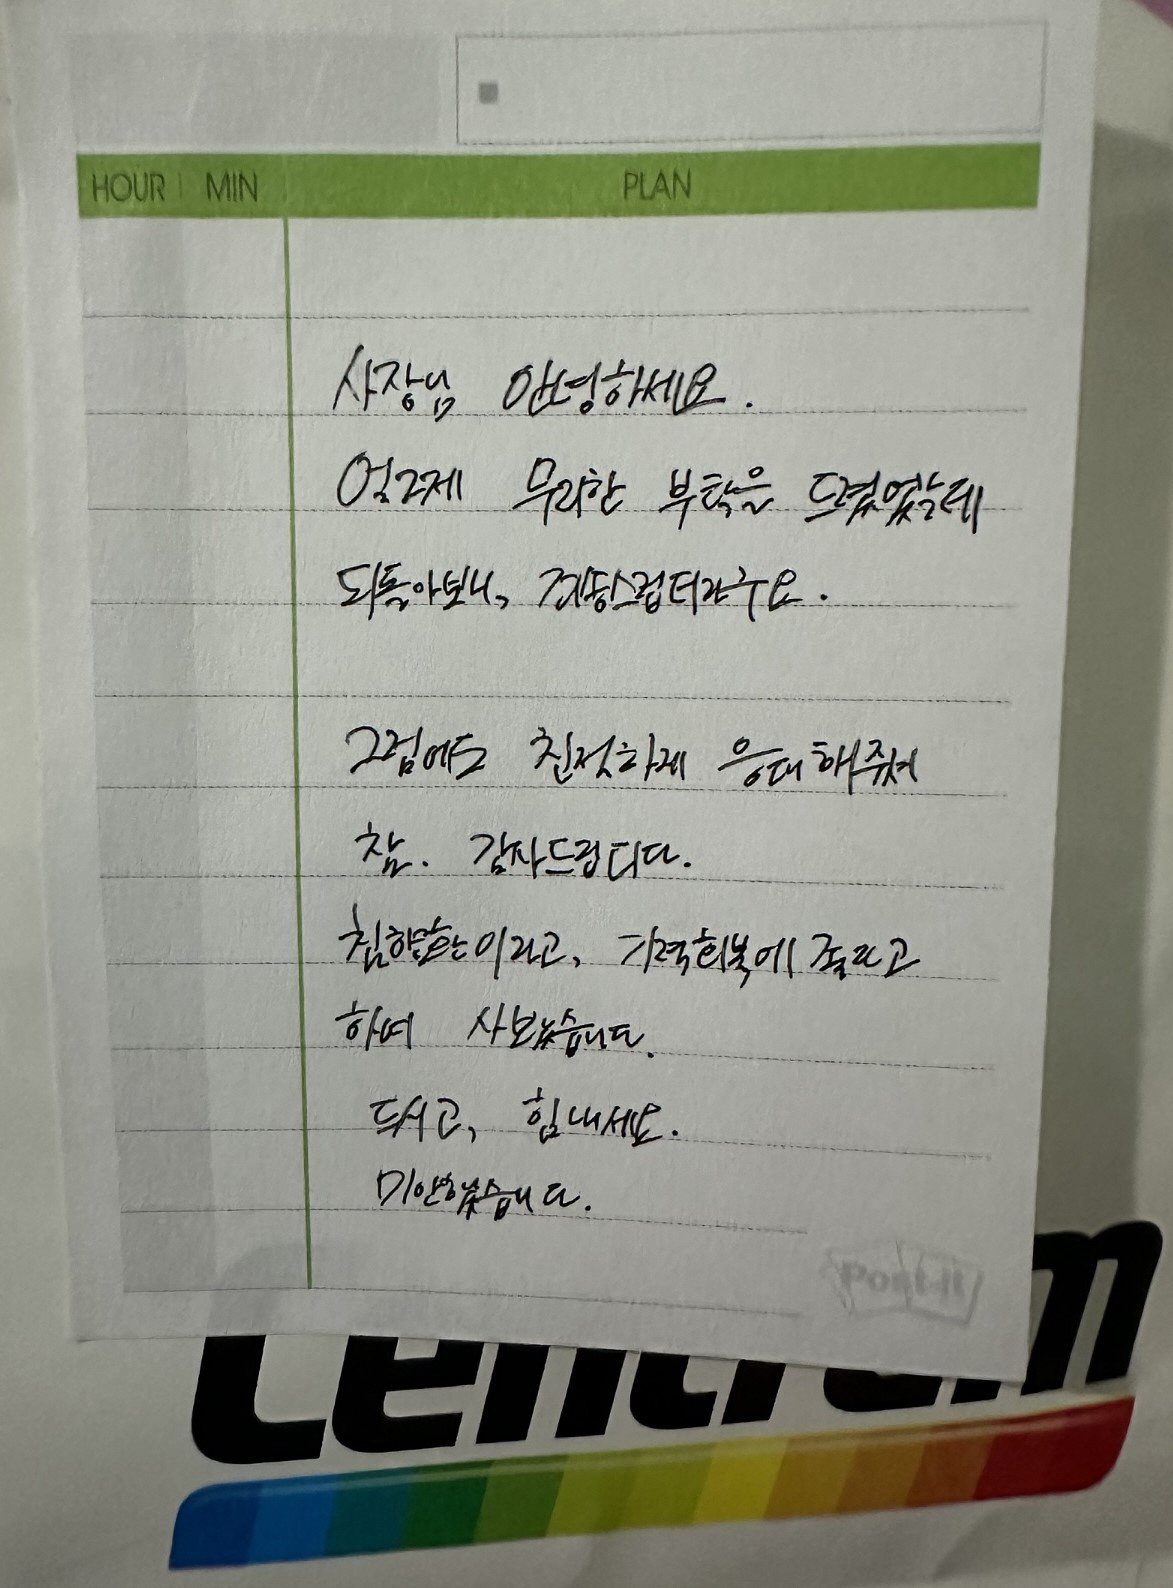 HOUR MIN PLAN
사장님 안녕하세요.
엊그제 무리한 부탁을 드렸었는데
되돌아보니, 죄송스럽더라구요.
그럼에도 친절하게 응대해줘서
참. 감사드립니다.
이라고, 기력회복에 좋다고
하여 사보았습니다.
드시고, 힘내세요.
미안했습니다.
Centrum